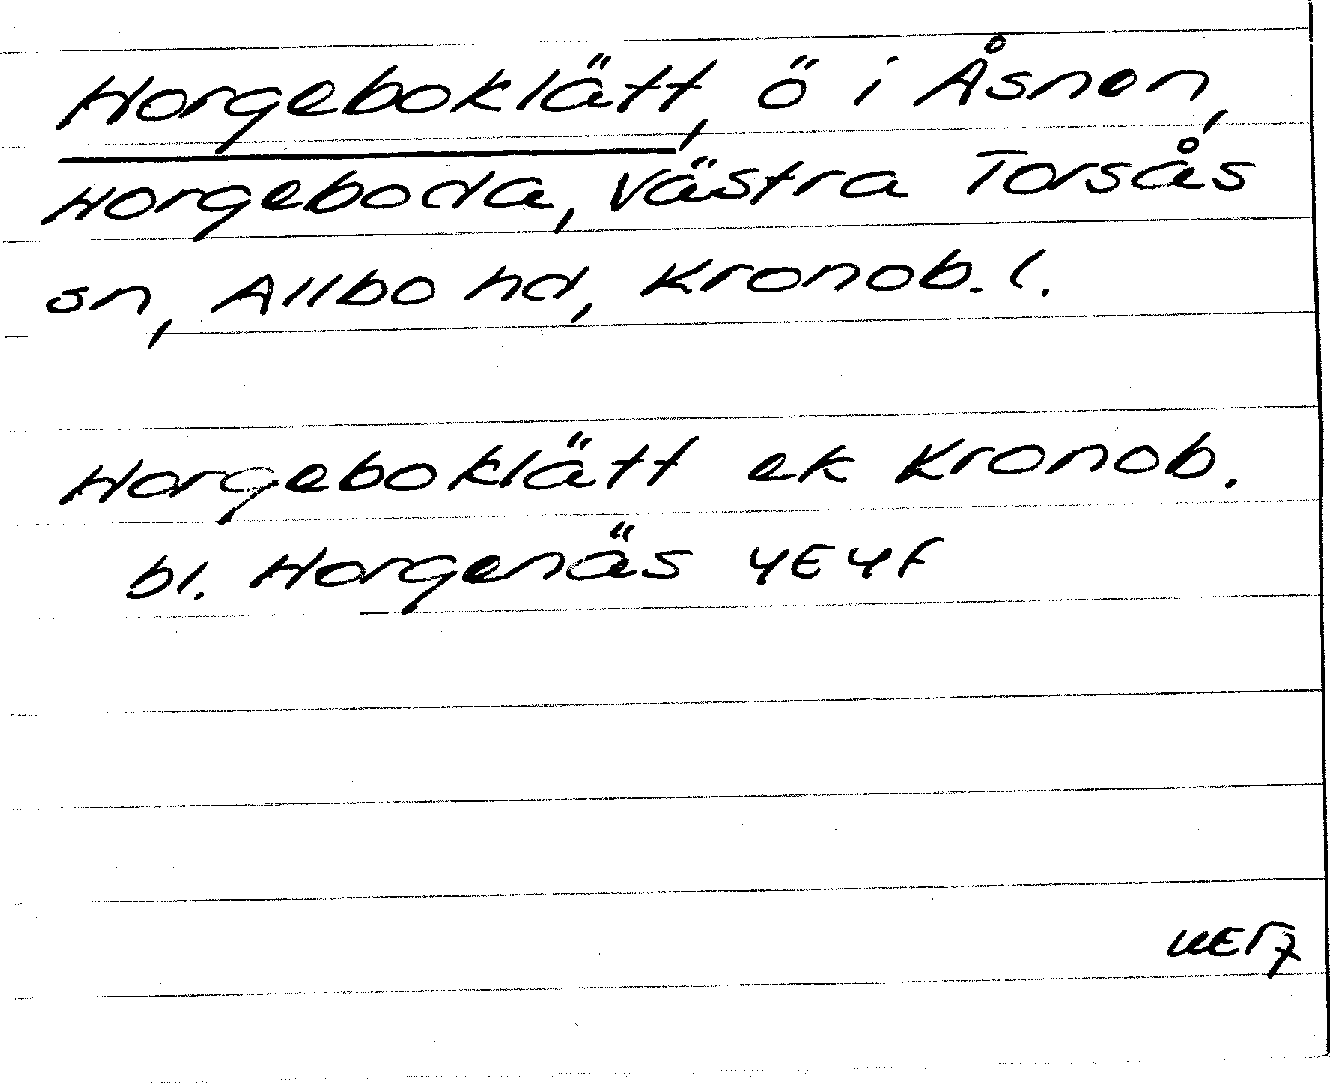 Horgeboklätt, ö i Åsnen,
Horgeboda, Västra Torsås
sn, Allbo hd, Kronob. l.
Horgeboklätt ek Kronob.
bl. Horgenäs 4E4f